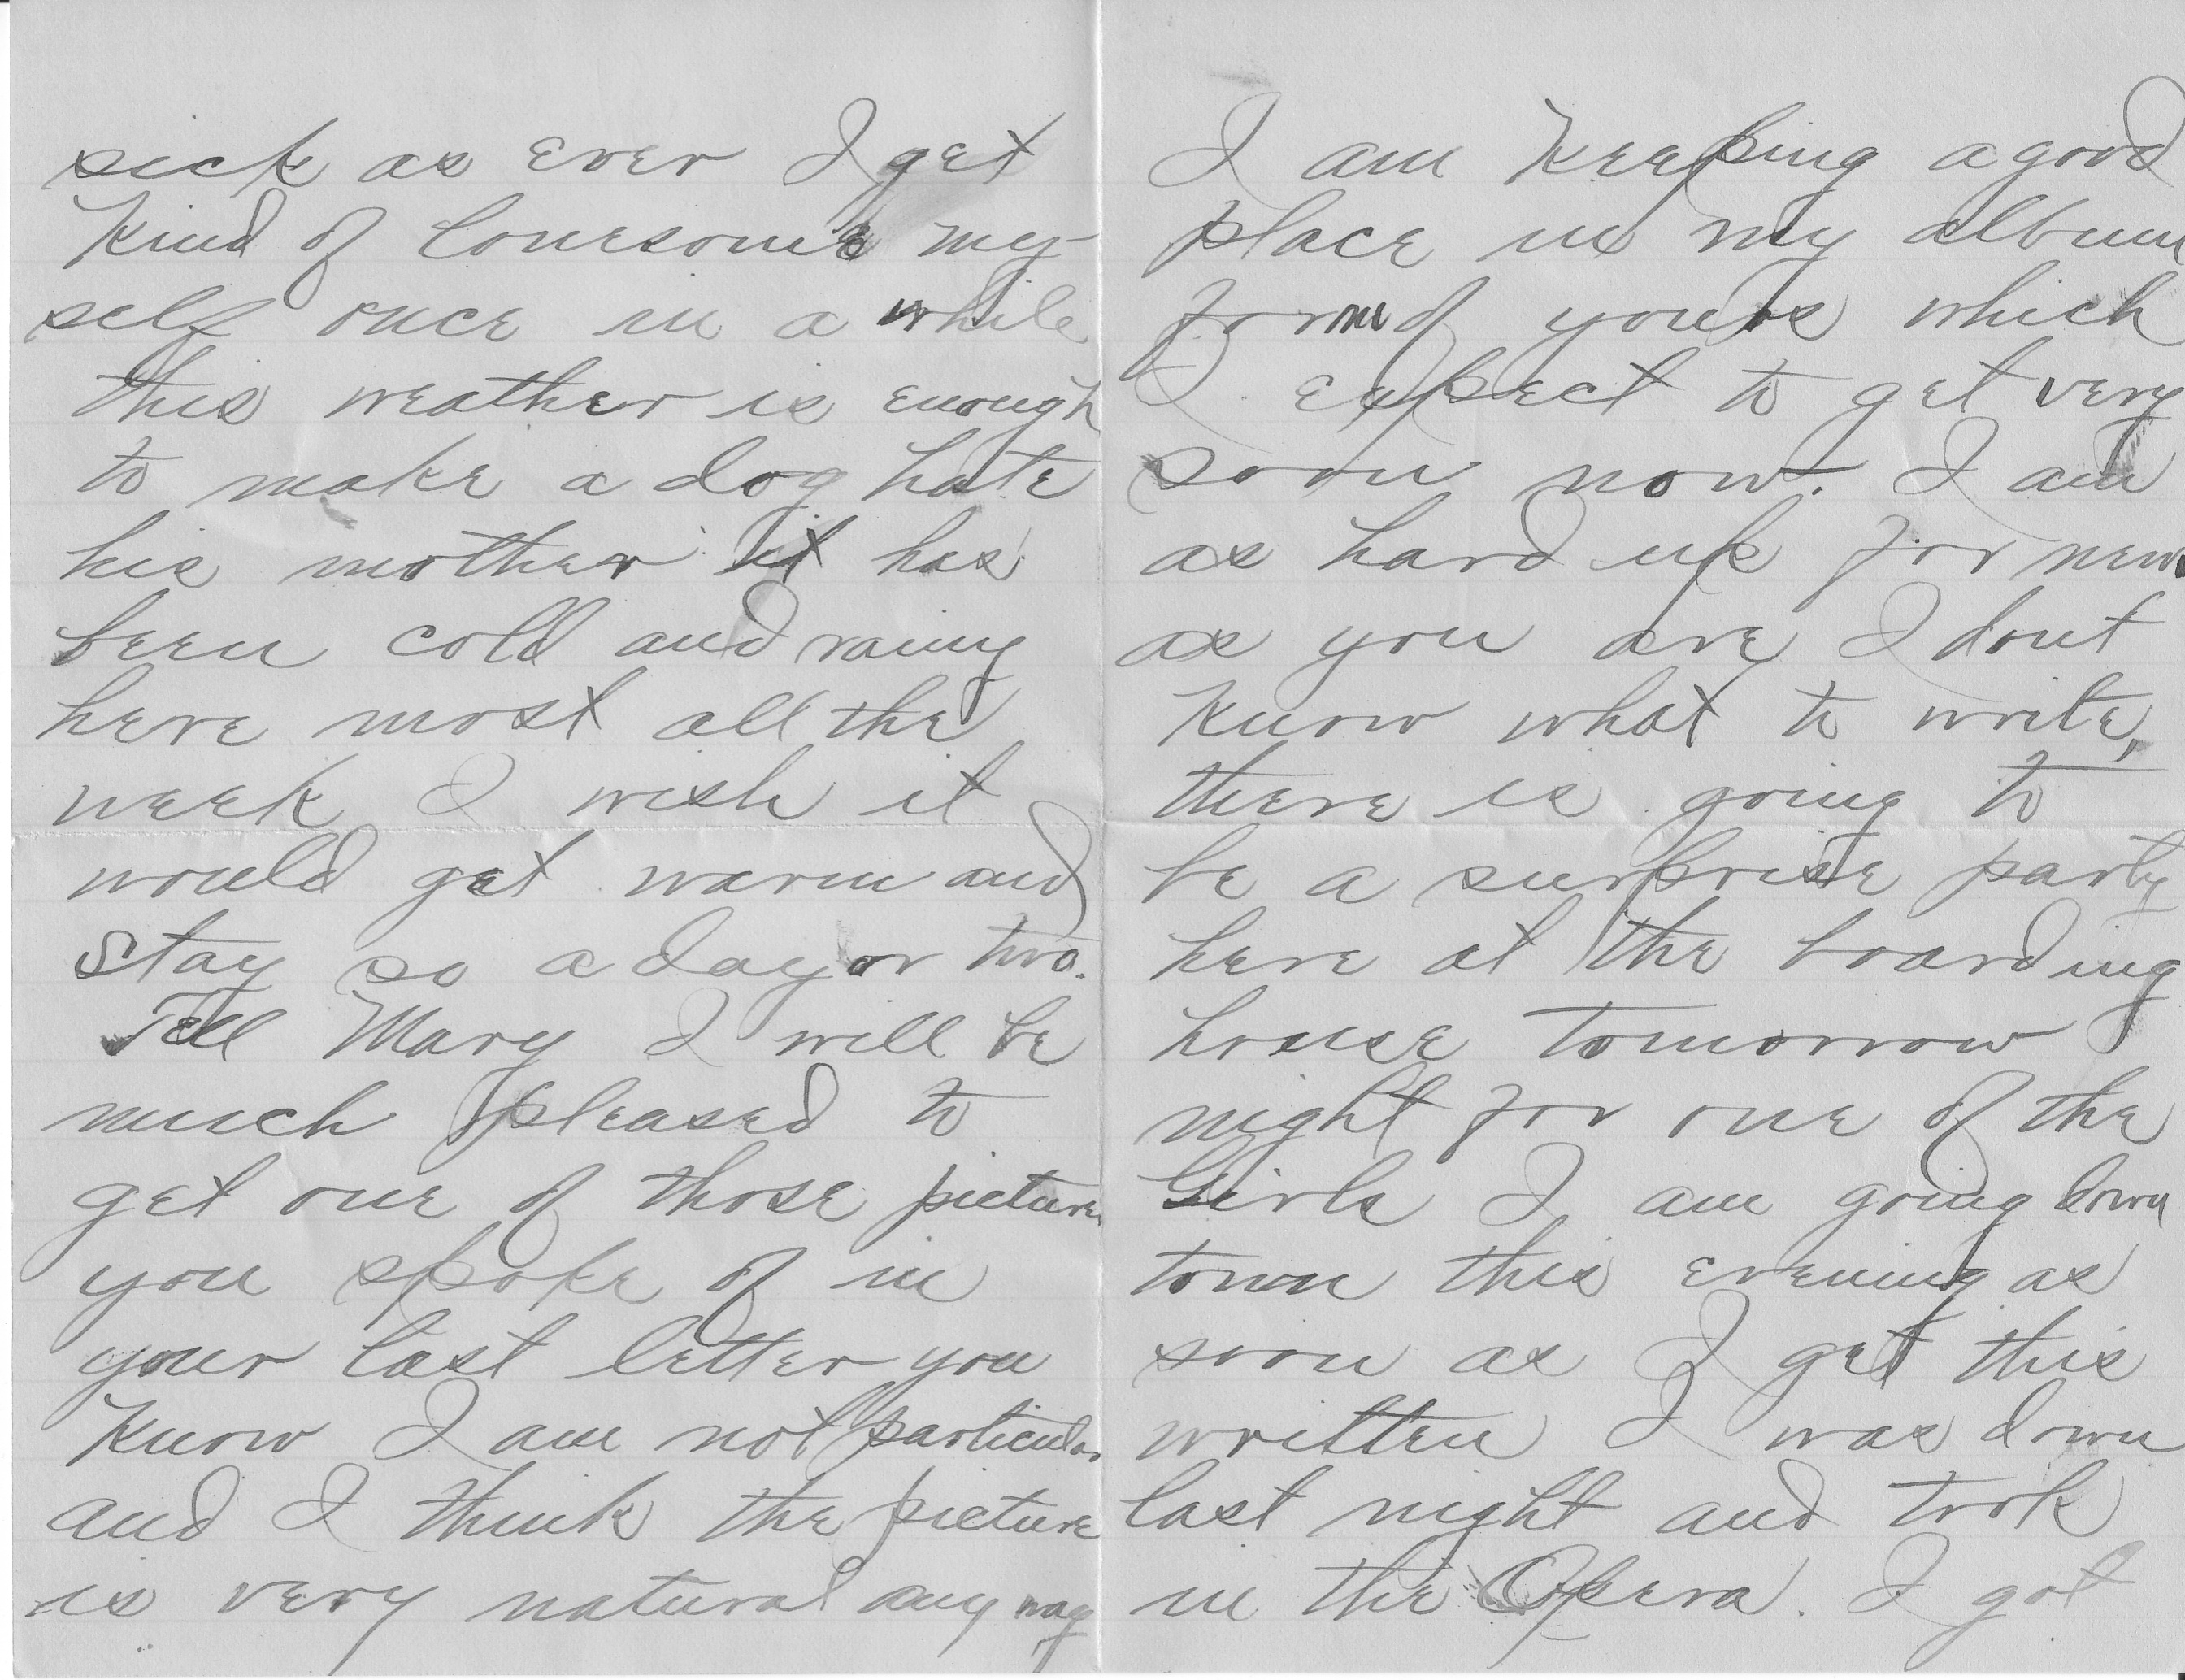 sick as ever I get
kind of lonesome my-
self once in a while
this weather is enough
to make a dog hate
his mother it has
been cold and rainy
here most all the
week I wish it
would get warm and
stay so a day or two.
Tell Mary I will be
much pleased to
get one of those pictures
you spoke of in
your last letter you
know I am not particular
and I think the picture
is very natural any way
I am keeping a good
place in my album
for yours which
I expect to get very
soon now. I am
as hard up for news
as you are I dont
know what to write,
there is going to
be a surprise party
here at the boarding
house tomorrow
night for one of the
Girls I am going down
town this evening as
soon as I get this
written I was down
last night and took
in the Opera. I got